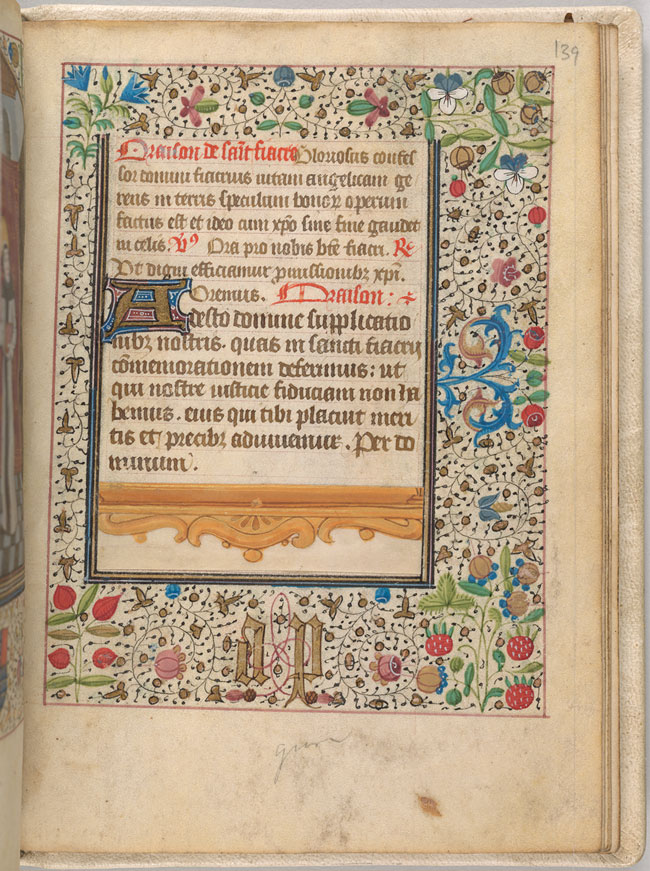 139
Oraison de saĩt fiacre Gloriosus confes
sor domini fiacrius uitam angelicam ge
rens in terris speculum bonoꝝ operum
factus est et ideo cum xp̃o sine fine gaudet
in celis. V⁹ Ora pro nobis bt̃e fiacri. R̃
Vt digni efficiamur ꝓmissionibꝫ xp̃i.
Oremus. Oraison :
Adesto domine supplicatio
nibꝫ nostris. quas in sancti fiacrii
cõmemorationem deferimus: ut
qui nostre iusticie fiduciam non ha
bemus. eius qui tibi placuit meri
tis et precibꝫ adiuuemur. Per do
minum.
a p